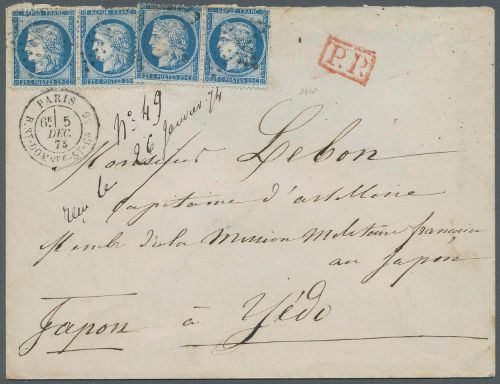 REPUB. FRANC. REPUB. FRANC. REPUB. FRANC. REPUB. FRANC.
25 C. POSTES 25 C. 25 C. POSTES 25 C. 25 C. POSTES 25 C. 25 C. POSTES 25 C.
P.P.
PARIS
6E 5
DEC.
73
R. ST-DOM-QUE-ST-GN
No. 49
reçu le 26 Janvier 74
Monsieur Lebon
Capitaine d'artillerie
Membre de la Mission Militaire française
au Japon
Japon à Yédo